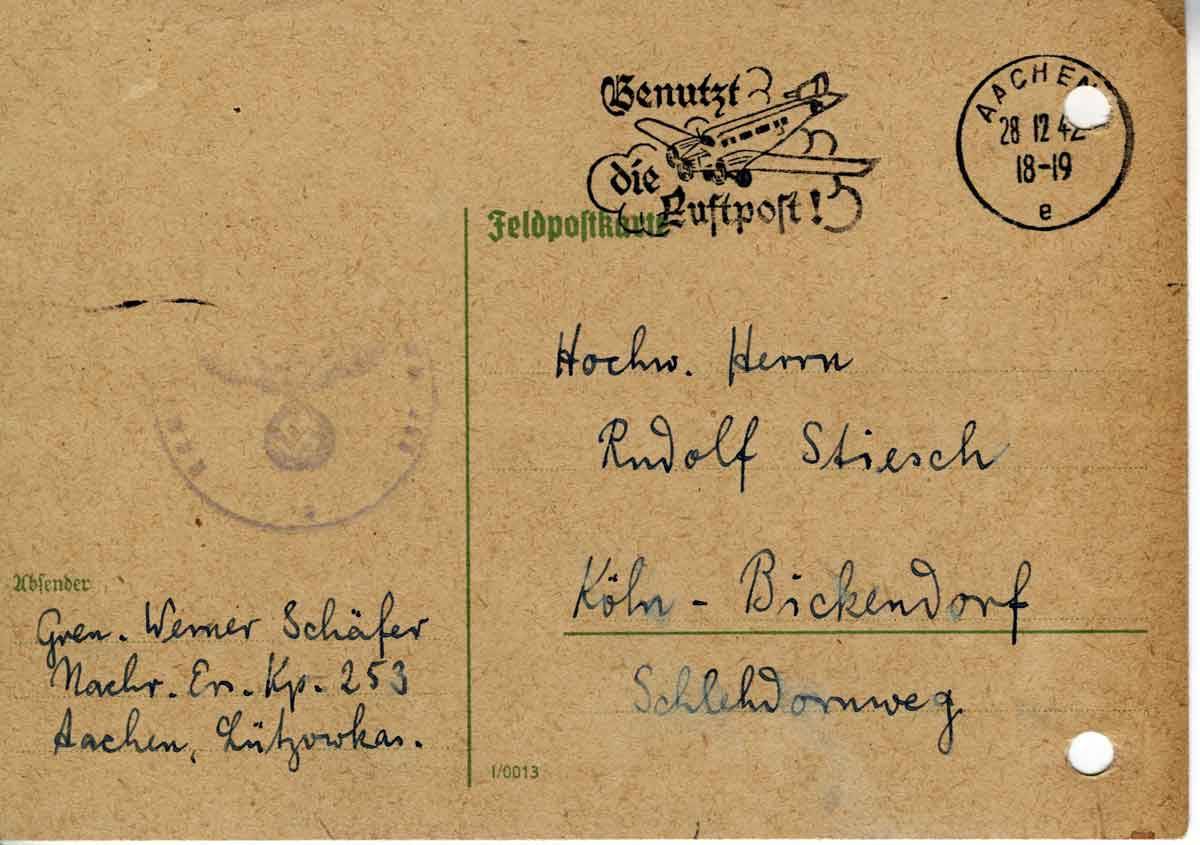 Benutzt
die
Luftpost!
AACHEN
28 12 42
18-19
e
Feldpostkarte
Hochw. Herrn
Rudolf Stiesch
Köln - Bickendorf
Schlehdornweg
Absender
Gren. Werner Schäfer
Nachr. Ers. Kp. 253
Aachen, Lützowkas.
I/0013